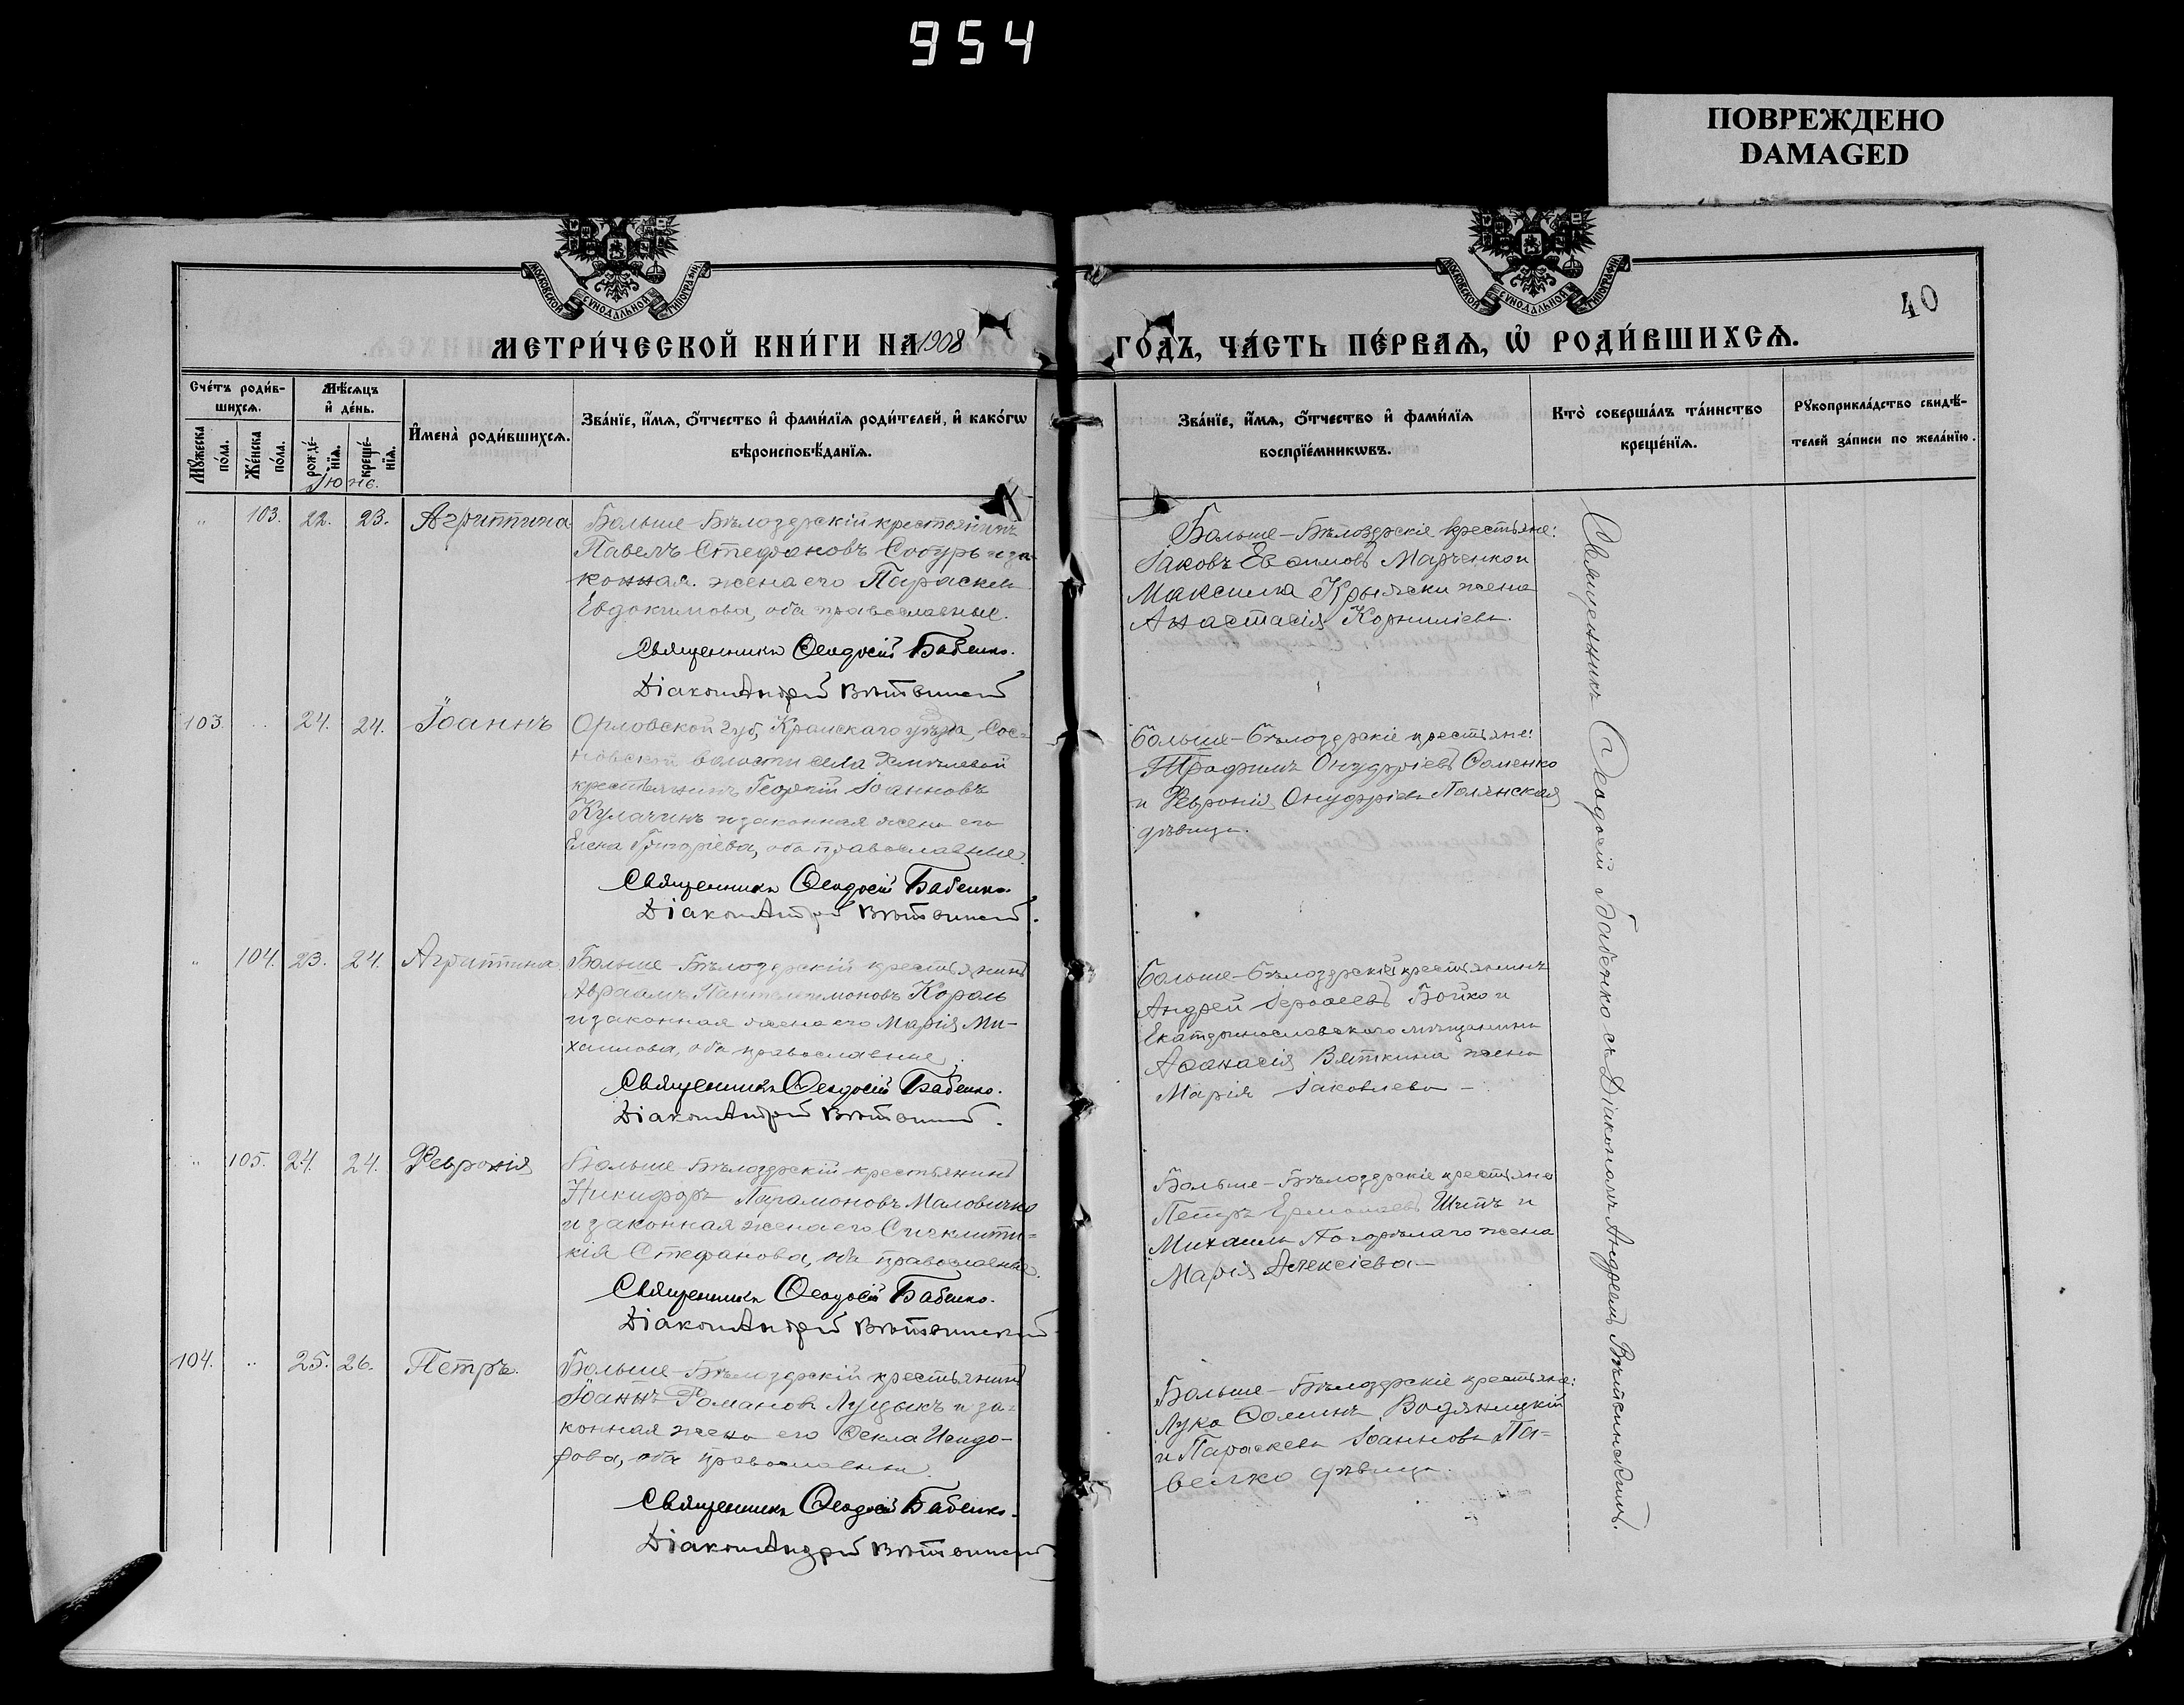 954
ПОВРЕЖДЕНО
DAMAGED
МОСКОВСКОЙ СѴНОДАЛЬНОЙ ТИПОГРАФІИ
МОСКОВСКОЙ СѴНОДАЛЬНОЙ ТИПОГРАФІИ
40
МЕТРИ́ЧЕСКОЙ КНИ́ГИ НА 1908
ГО́ДЪ, ЧА́СТЬ ПЕ́РВАѦ, Ѡ҆ РОДИ́ВШИХСѦ.
Сче́тъ роди́в-
шихсѧ.
Мꙋ́жеска по́ла.
Же́нска по́ла.
Мѣ́сѧцъ
и҆ де́нь.
рожде́-нїѧ.
креще́-нїѧ.
Іюнь.
И҆мена̀ роди́вшихсѧ.
Зва́нїе, и҆́мѧ, ѻ҆́тчество и҆ фами́лїѧ роди́телей, и҆ како́гѡ
вѣроисповѣ́данїѧ.
Зва́нїе, и҆́мѧ, ѻ҆́тчество и҆ фами́лїѧ
воспрїе́мникѡвъ.
Кто̀ соверша́лъ та́инство
креще́нїѧ.
Рꙋкоприкла́дство свидѣ́-
телей за́писи по жела́нїю.
" 103. 22. 23. Агриппина
Больше-Бѣлозерскій крестьянинъ
Павелъ Стефановъ Собурь и за-
конная жена его Параскева
Евдокимова, оба православные.
Священникъ Ѳеодосій Бабенко.
Діаконъ Андрей Вѣтвинскій
Больше-Бѣлозерскіе крестьяне:
Іаковъ Евѳимовъ Марченко и
Максима Крыжски жена
Анастасія Корниліева.
103. " 24. 24. Іоаннъ
Орловской губ, Кромскаго уѣзда, Сос-
новской волости села
крестьянинъ Георгій Іоанновъ
Кулачинъ и законная жена его
Елена Григоріева, оба православные.
Священникъ Ѳеодосій Бабенко.
Діаконъ Андрей Вѣтвинскій.
Больше-Бѣлозерскіе крестьяне:
Трофимъ Онуфріевъ Ѳоменко
и Февронія Онуфріева Полянская
дѣвица.
" 104. 23. 24. Агриппина
Больше-Бѣлозерскій крестьянинъ
Авраамъ Пантелеимоновъ Король
и законная жена его Марія Ми-
хаилова, оба православные.
Священникъ Ѳеодосій Бабенко.
Діаконъ Андрей Вѣтвинскій.
Больше-Бѣлозерскій крестьянинъ
Андрей Іероѳеевъ Бойко и
Екатеринославскаго мѣщанина
Аѳанасія Вяткина жена
Марія Іаковлева –
" 105. 24. 24. Февронія
Больше-Бѣлозерскій крестьянинъ
Никифоръ Парамоновъ Маловичко
и законная жена его Сигклити-
кія Стефанова, оба православные.
Священникъ Ѳеодосій Бабенко.
Діаконъ Андрей Вѣтвинскій
Больше-Бѣлозерскіе крестьяне
Петръ Ермолаевъ Шитъ и
Михаила Погорѣлаго жена
Марія Алексіева –
104. " 25. 26. Петръ.
Больше-Бѣлозерскій крестьянинъ
Іоаннъ Романовъ Луцыкъ и за-
конная жена его Ѳекла Исидо-
рова, оба православные.
Священникъ Ѳеодосій Бабенко.
Діаконъ Андрей Вѣтвинскій
Больше-Бѣлозерскіе крестьяне:
Лука Ѳоминъ Водяницкій
и Параскева Іоаннова Па-
велко дѣвица.
Священникъ Ѳеодосій Бабенко съ Діакономъ Андреемъ Вѣтвинскимъ.